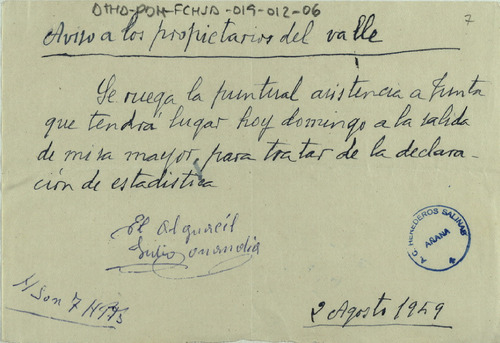 DTHA-POM-FCHSA-019-012-06
7
Aviso a los propietarios del valle
Se ruega la puntual asistencia a Junta
que tendrá lugar hoy domingo a la salida
de misa mayor, para tratar de la declara-
ción de estadistica
El Alguacil
Julio
A.C. HEREDEROS SALINAS
ARANA
Son 7
2 Agosto 1959